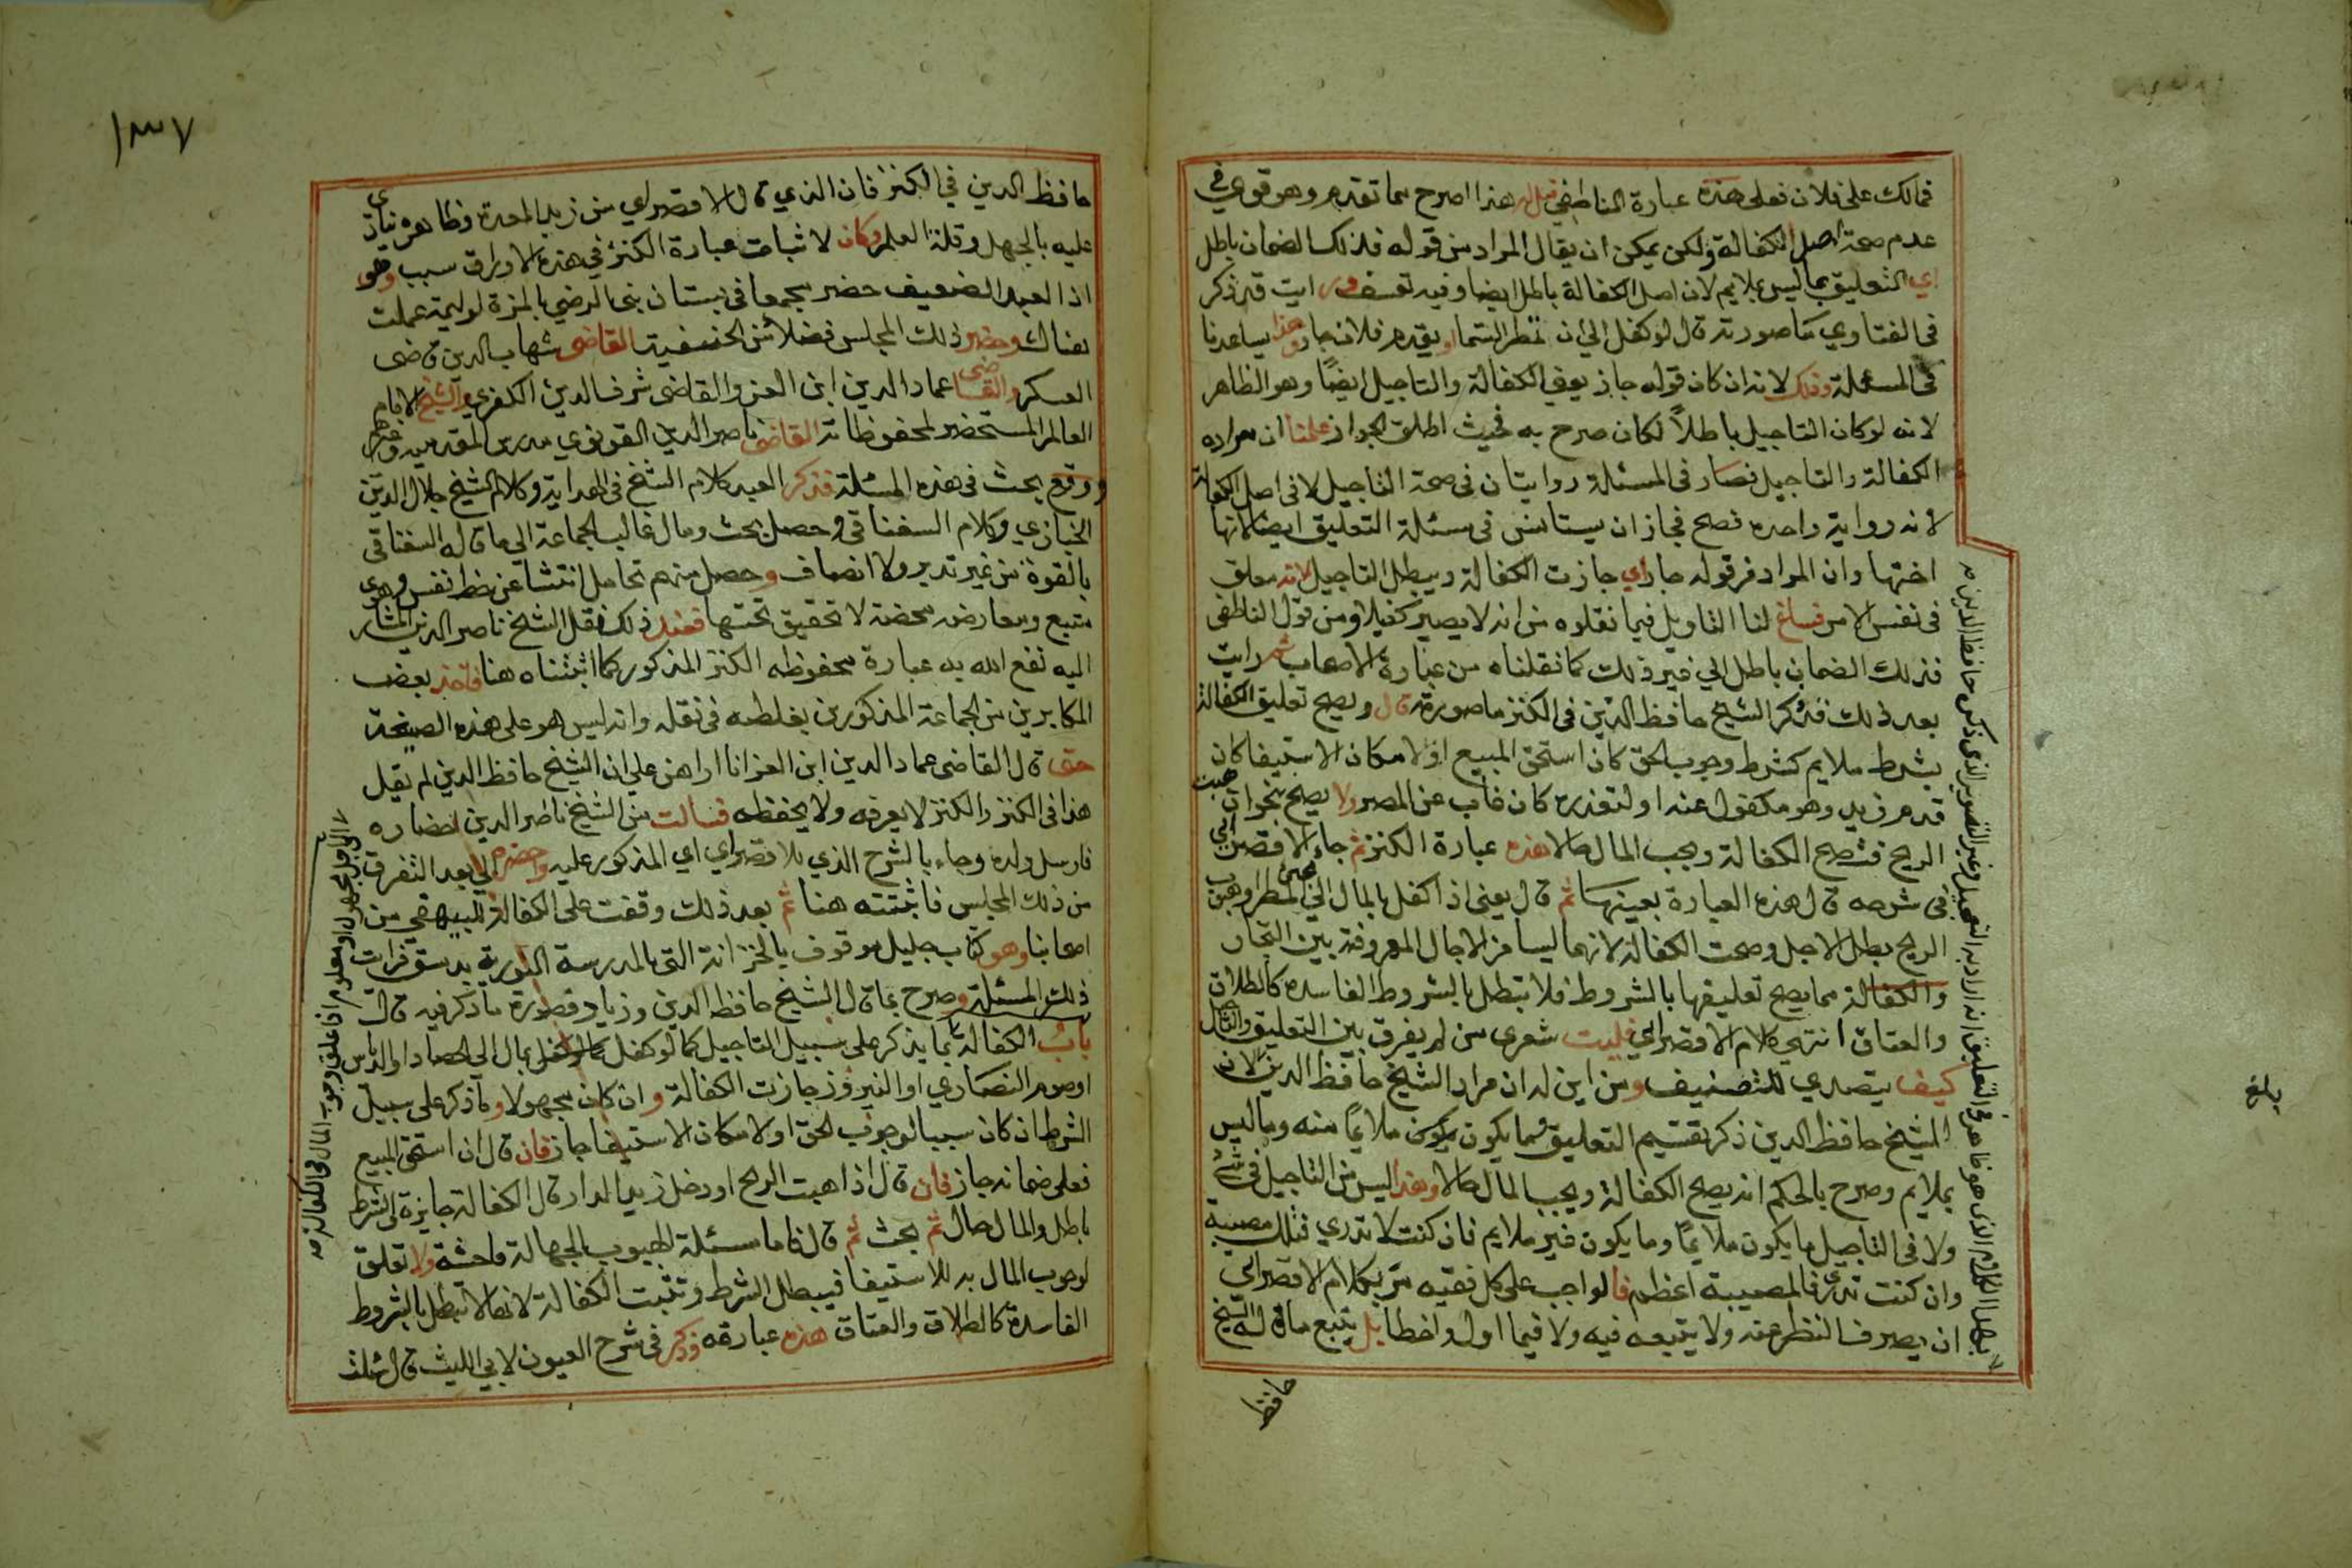 فمالك على فلان فعلى هذه عبارة الناطفي قيل له هذا اصرح مما تقدم وهو قوي في
عدم صحة اصل الكفالة ولكن يمكن ان يقال المراد من قوله فذلك الضمان باطل
اي التعليق بما ليس بملايم لان اصل الكفالة باطل ايضا وفيه تعسف ورايت قد ذكر
في الفتاوي ما صورته قال لو كفل الى ان تمطر السما او يقدم فلان جاز وهذا يساعدنا
في المسئلة وذلك لانه ان كان قوله جاز يعني الكفالة والتاجيل ايضًا وهو الظاهر
لانه لو كان التاجيل باطلاً لكان صرح به فحيث اطلق الجواز علمنا ان مراده
الكفالة والتاجيل فصار في المسئلة روايتان في صحة التاجيل لا في اصل الكفالة
لانه رواية واحدة فصح فجاز ان يستانس في مسئلة التعليق ايضا لانها
اختها وان المراد من قوله جاز اي جازت الكفالة ويبطل التاجيل لانه معلق
في نفس الامر فساغ لنا التاويل فيما نقلوه من انه لا يصير كفيلا ومن قول الناطفي
فذلك الضمان باطل الي غير ذلك كما نقلناه من عبارة الاصحاب ثم رايت
بعد ذلك قد ذكر الشيخ حافظ الدين في الكنز ما صورته قال ويصح تعليق الكفالة
بشرط ملايم كشرط وجوب الحق كان استحق المبيع او لامكان الاستيفا كان
قدم زيد وهو مكفول عنه او لتعذره كان غاب عن المصر ولا يصح بنحو ان هبت
الريح فتصح الكفالة ويجب المال حالا هذه عبارة الكنز ثم جاء الاقصرائي
في شرحه قال هذه العبارة بعينها ثم قال يعني اذا كفل بالمال الي مجئ المطر او هبوب
الريح بطل الاجل وصحت الكفالة لانهما ليسا من الاجال المعروفة بين التجار
والكفالة مما يصح تعليقها بالشروط فلا تبطل بالشروط الفاسدة كالطلاق
والعتاق انتهي كلام الاقصرائي فليت شعري من لم يفرق بين التعليق والتاجيل
كيف يتصدي للتصنيف ومن اين له ان مراد الشيخ حافظ الدين لان
الشيخ حافظ الدين ذكر تقسيم التعليق مما يكون يكون ملايمًا منه وما ليس
بملايم وصرح بالحكم انه يصح الكفالة ويجب المال حالا وهذا ليس من التاجيل في شئ
ولا في التاجيل ما يكون ملايمًا وما يكون غير ملايم فان كنت لا تدري فتلك مصيبة
وان كنت تدري فالمصيبة اعظم فالواجب على كل فقيه مر بكلام الاقصرائي
ان يصرف النظر عنه ولا يتبعه فيه ولا فيما اول واخطا بل يتبع ما قاله الشيخ
حافظ
بلغ
حافظ الدين في الكنز فان الذي قال الاقصرائي من زبد المعدة وظاهره ينادي
عليه بالجهل وقلة العلم وكان لاثبات عبارة الكنز في هذه الاوراق سبب وهو
اذا العبد الضعيف حضر مجمعا في بستان بني الرضي بالمزة لوليمة عملت
هناك وحضر ذلك المجلس فضلا من الحنفية القاضي شهاب الدين قاضى
العسكر والقاضي عماد الدين ابن العز والقاضى شرف الدين الكفري والشيخ الامام
العالم المستحضر لمحفوظاته القاضي ناصر الدين القونوي مدرس المقدمية وغيرهم
ووقع بحث في هذه المسئلة فذكر العبد كلام الشيخ في الهداية وكلام الشيخ جلال الدين
الخبازي وكلام السغناقي وحصل بحث ومال غالب الجماعة الي ما قاله السغناقي
بالقوة من غير تدبر ولا انصاف وحصل منهم تحامل انتشا عن حظ نفس وهوي
متبع ومعارضه محضة لا تحقيق تحتها فعند ذلك نقل الشيخ ناصر الدين المشار
اليه نفع الله به عبارة محفوظه الكنز المذكور كما اثبتناه هنا فاخذ بعض
المكابرين من الجماعة المذكورين يغلطه في نقله وانه ليس هو على هذه الصيغة
حتى قال القاضى عماد الدين ابن العز انا اراهن علي ان الشيخ حافظ الدين لم يقل
هذا في الكنز والكنز لا يعرفه ولا يحفظه فسالت من الشيخ ناصر الدين احضاره
فارسل ولده وجاء بالشرح الذي للاقصرائي اي المذكور عليه واحضره الي بعد التفرق
من ذلك المجلس فاثبتته هنا ثم بعد ذلك وقفت على الكفالة للبيهقي من
اصحابنا وهو كتاب جليل موقوف بالخزانة التى بالمدرسة النورية بدمشق فرايت
ذلك المسئلة وصرح بما قال الشيخ حافظ الدين وزياد وصورة ما ذكر فيه قال
باب الكفالة ما يذكر على سبيل التاجيل كما لو كفل بمال الى الحصاد او الدياس
او صوم النصاري او النيروز جازت الكفالة وان كان مجهولا وما ذكر على سبيل
الشرط ان كان سببا لوجوب الحق او لامكان الاستيفا جاز فان قال ان استحق المبيع
فعلي ضمانه جاز فان قال اذا هبت الريح او دخل زيد الدار قال الكفالة جايزة والشرط
باطل والمال حال ثم بحث ثم قال فاما مسئلة الهبوب الجهالة فاحشة ولا تعلق
لوجوب المال به للاستيفا فيبطل الشرط وتثبت الكفالة لانها لا تبطل بالشروط
الفاسدة كالطلاق والعتاق هذه عبارته وذكر في شرح العيون لابي الليث قال
١٣٧